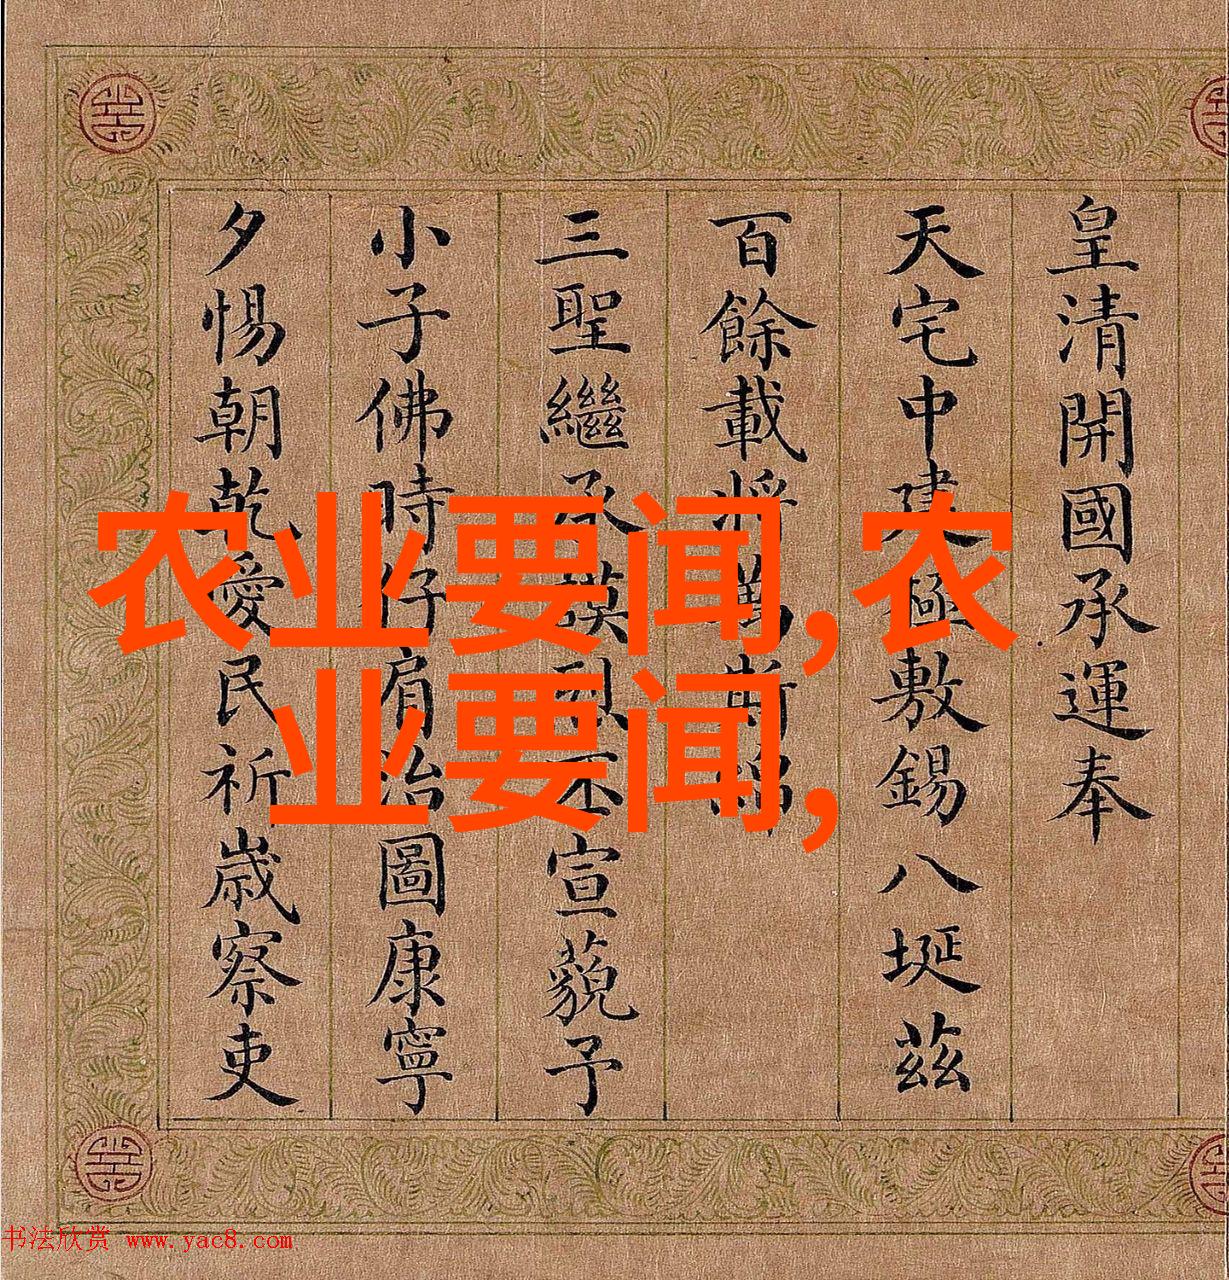 皇清開國承運奉
天宅中建極敷錫八埏茲
百餘載將萬斯
三聖繼承謨烈丕宣藐予
小子佛時仔肩治圖康寧
夕惕朝乾愛民祈歲察吏
农业要闻,农
业要闻,
书法欣赏 www.yac8.com